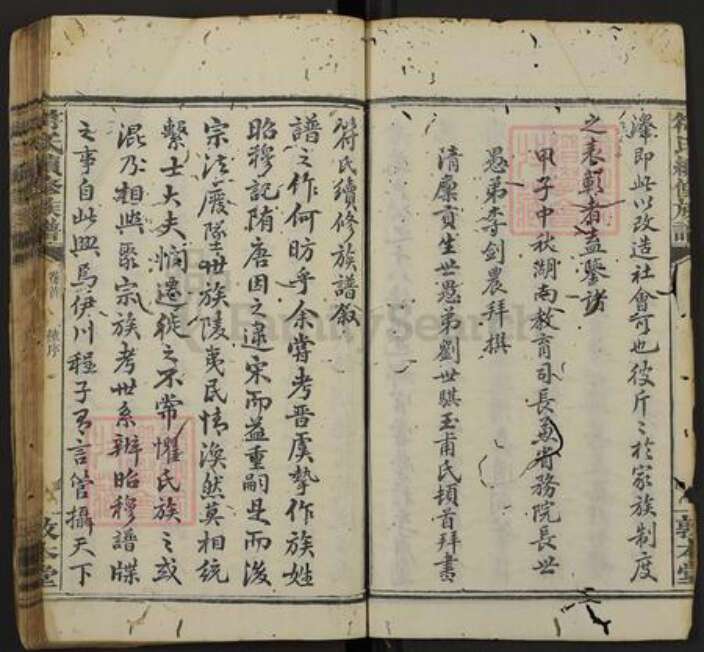 澤即此以改造社會可也彼斤々於家族制度
之表彰者盍鑒諸
甲子中秋湖南教育司長兼省務院長世
愚弟李劍農拜撰
清廩貢生世愚弟劉世騏玉甫氏頓首拜書
符氏續修族譜
敦本堂
符氏續修族譜敘
譜之作何昉乎余嘗考晉虞摯作族姓
昭穆記隋唐因之逮宋而益重嗣是而後
宗法廢墜世族陵夷民情渙然莫相統
繫士大夫憫遷徙之不常懼氏族之或
混乃相與聚宗族考世系辦昭穆譜牒
之事自此興焉伊川程子有言管攝天下
符氏續修族譜
卷首
敦本堂
FamilySearch